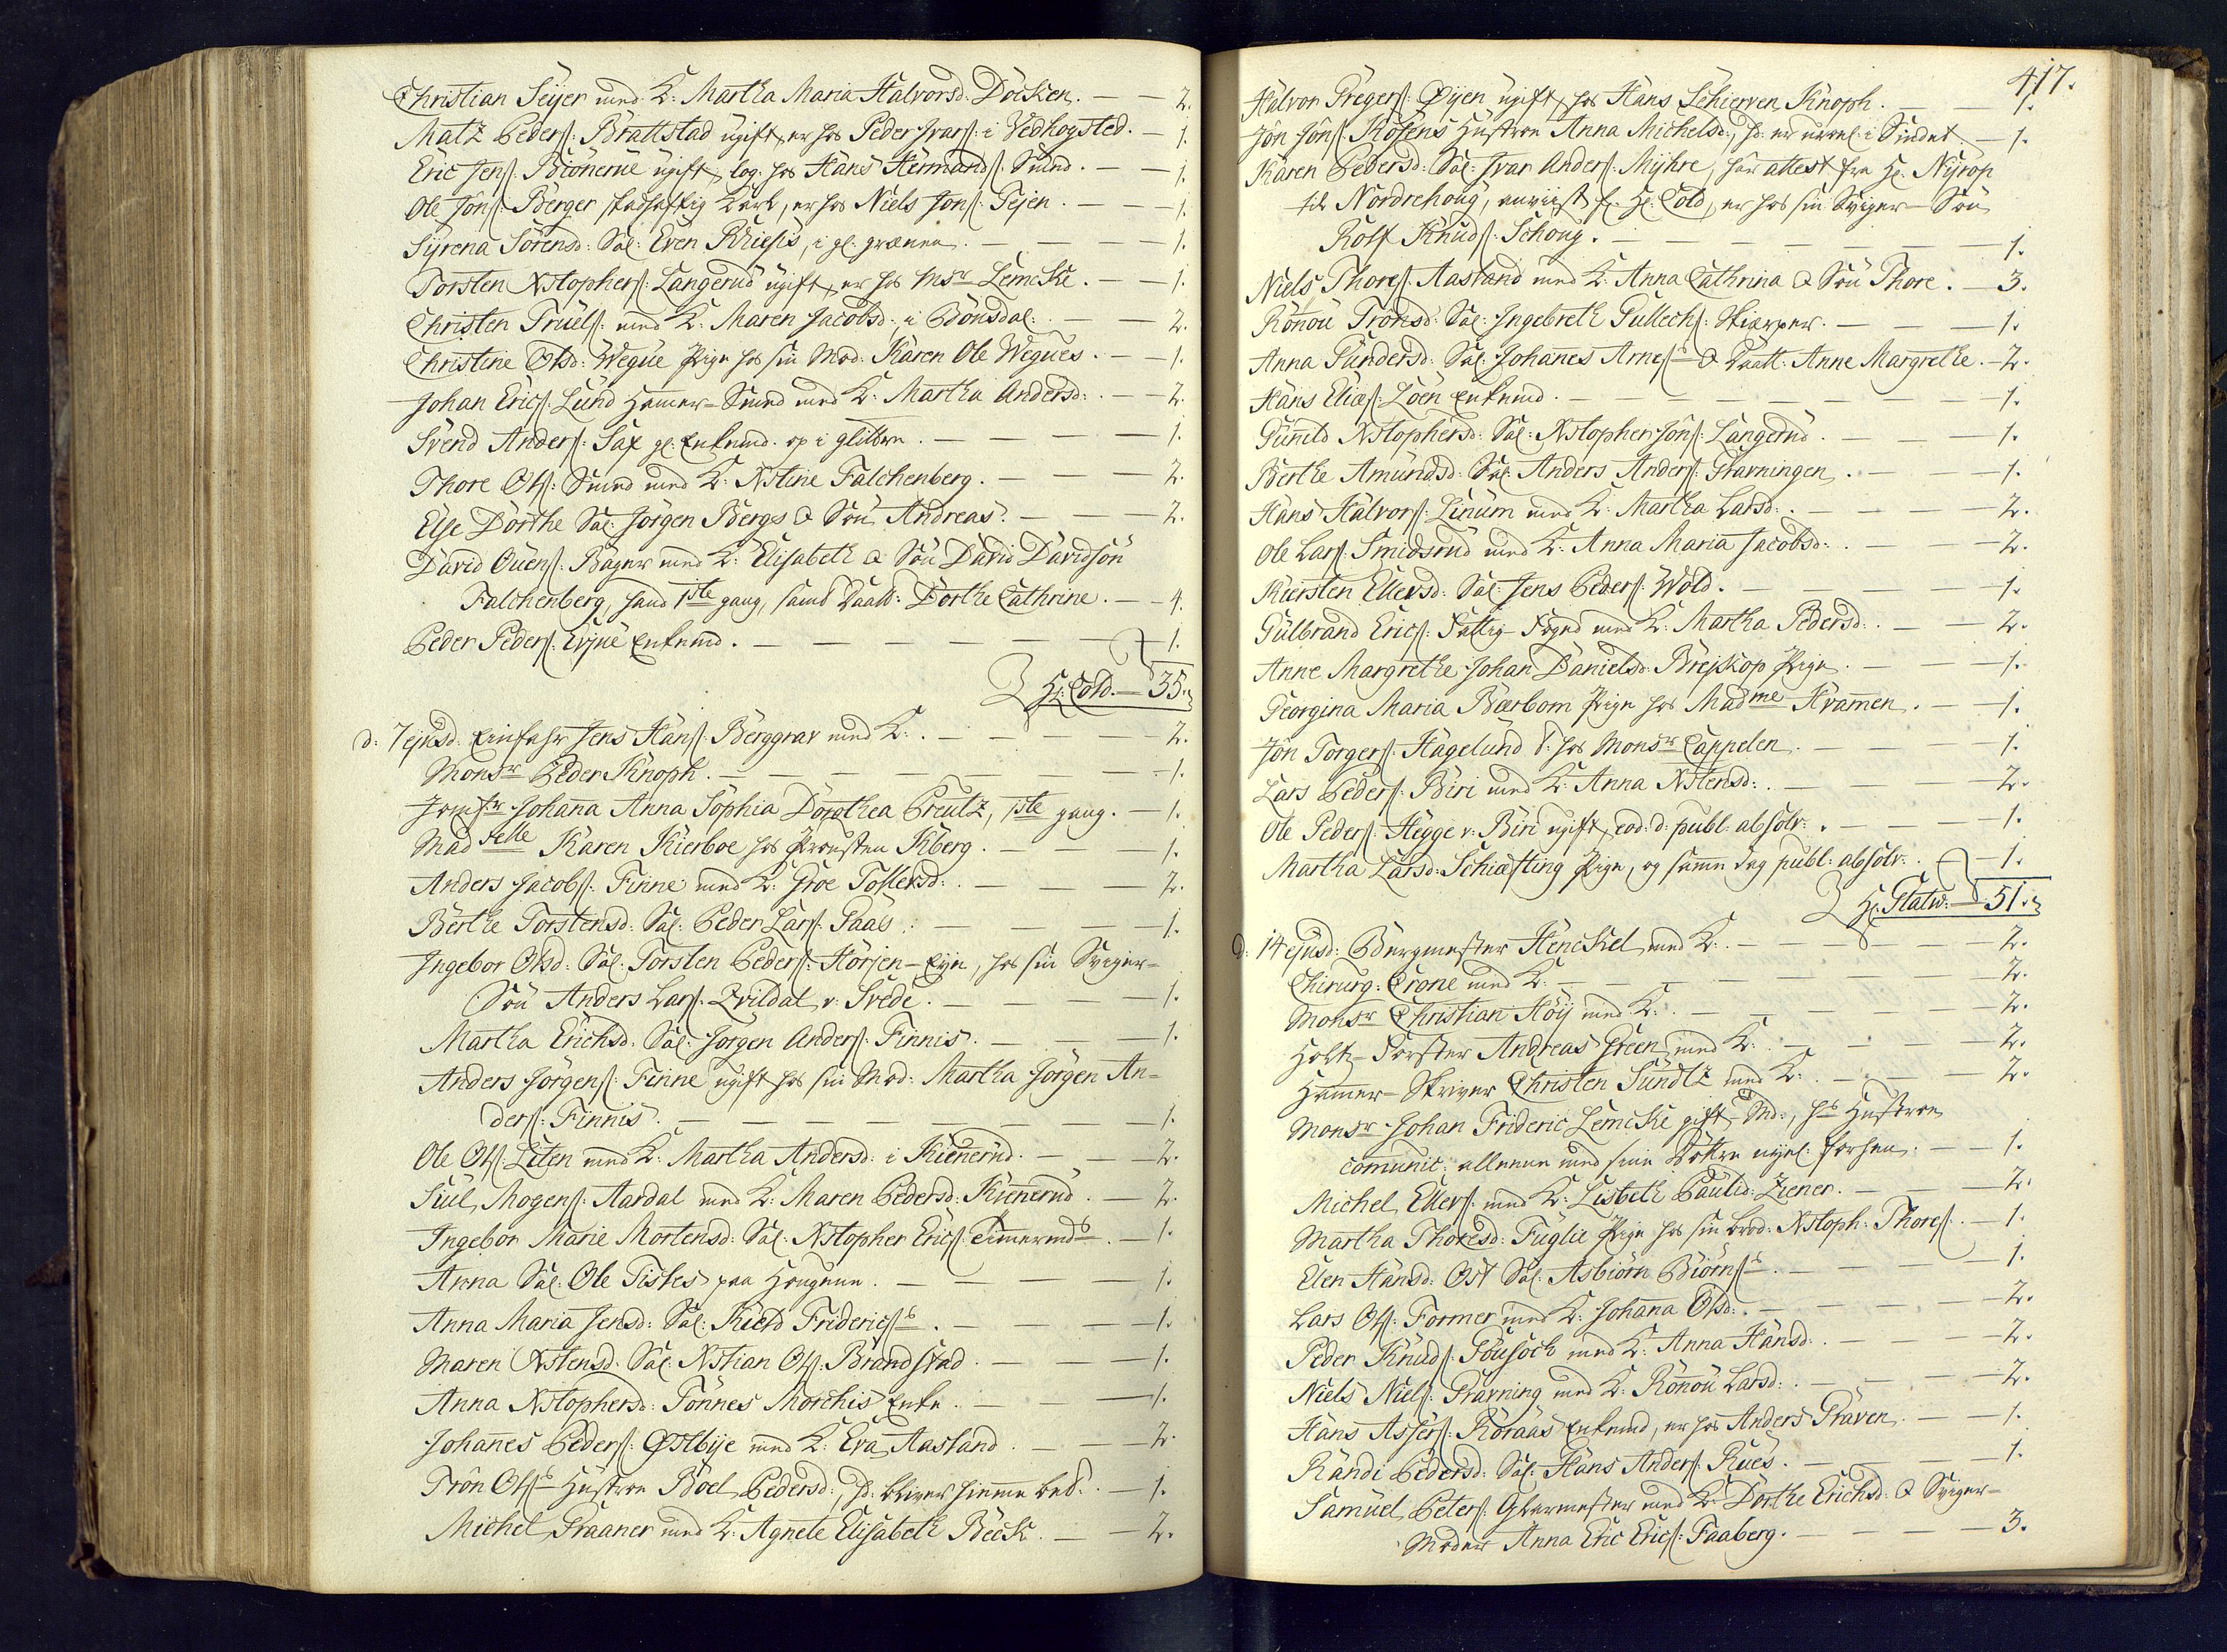 Christian Seÿer med K: Martha Maria Halvorsd: Docken. — — 2.
Matz Peders: Brattstad ugift, er hos Peder Ivars: i Vedhogsted. — 1.
Eric Jens: Biönerne ugift, log. hos Hans Hermands: Smed. — — 1.
Ole Jöns: Berger skadhaftig Karl, er hos Niels Jons: Tejen. — — 1.
Sÿrena Sörensd: Sal: Even, i gl: grænen. — — — 1.
Torsten Xstophers: Langerud ugift, er hos Msr Lemcke. — — 1.
Christen Truels: med K: Maren Jacobsd: i Bönsdal. — — 2.
Christine Olsd: Wegue Pige hos sin Mod: Karen Ole Wegues. — — 1.
Johan Erics: Lund Hammer-Smed med K: Martha Andersd: — — 2.
Svend Anders: Sax gl: Enkemd. op i glitten. — — — 1.
Thore Ols: Smed med K: Xstine Falchenberg. — — — 2.
Else Dorthe Sal: Jörgen Bergs & Sön Andreas. — — — 2.
David Ouens: Bager med K: Elisabeth & Sön David Davidsön
Falchenberg, hand 1ste gang, samt Daatt: Dorthe Cathrine. — — 4.
Peder Peders: Evjue Enkemd. — — — — 1.
Hr: Cold. — 35.
d: 7 ejusd: Einfahr Jens Hans: Berggrav med K: — — — 2.
Monsr Peder Knoph. — — — — — 1.
Jomfr Johana Anna Sophia Dorothea Creutz, 1ste gang. — 1.
Madselle Karen Kierboe hos Provsten Kberg. — — — 1.
Anders Jacobs: Finne med K: Groe Tollersd: — — — 2.
Berthe Torstensd: Sal: Peder Lars: Paals. — — — 1.
Ingebor Olsd: Sal: Torsten Peders: Hörjen-Eyn, hos sin Sviger-
Sön Anders Lars: Qvildal v: Svede. — — — 1.
Martha Erichsd: Sal: Jorgen Anders: Finnis. — — — 1.
Anders Jörgens: Finne ugift hos sin Mod: Martha Jörgen An-
ders: Finnis. — — — — — 1.
Ole Ols: Liten med K: Martha Andersd: i Kienerud. — — 2.
Siul Mogens: Aardal med K: Maren Pedersd: Kienerud. — 2.
Ingebor Marie Mortensd: Sal: Xstopher Erics: Timermds. — 1.
Anna Sal: Ole Fiskes paa Hougene. — — — — 1.
Anna Maria Jensd: Sal: Kield Fridericss. — — — 1.
Maren Xstensd: Sal: Xstian Ols: Brandstad. — — — 1.
Anna Xstophersd: Tönnes Morchis Enke. — — — 1.
Johanes Peders: Østbÿe med K: Eva Aasland. — — 2.
Tron Olss Hustroe Boel Pedersd:, hd: bliver hiemme bet: — 1.
Michel Praaner med K: Agnete Elisabeth Beck. — — 2.
417.
Halvor Gregers: Øÿen ugift, hos Hans Schierven Knoph. — 1.
Jön Jöns: Rosens Hustroe Anna Michelsd:, hd: er urol: i Sindet. — 1.
Karen Pedersd: Sal: Ivar Anders: Mÿhre, har attest fra Hr: Nÿrop
til Nordrehoug, anviist fr: Hr: Cold, er hos sin Sviger-Sön
Rolf Knuds: Schoug. — — — — — 1.
Niels Thores: Aasland med K: Anna Cathrina & Sön Thore. — 3.
Rönnou Tronsd: Sal: Ingebreth Gullechs: Skierper. — — — 1.
Anna Gundersd: Sal: Johanes Arness & Daatt: Anne Margrethe. — 2.
Hans Elias: Loen Enkemd. — — — — — 1.
Gunild Xstophersd: Sal: Xstopher Jöns: Langerud. — — 1.
Berthe Amundsd: Sal: Anders Anders: Gravningen. — — 1.
Hans Halvors: Linum med K: Martha Larsd: — — 2.
Ole Lars: Smidsrud med K: Anna Maria Jacobsd: — — 2.
Kiersten Ellevsd: Sal: Jens Peders: Wold. — — — 1.
Gulbrand Erics: Fattig-Fogd med K: Martha Pedersd: — — 2.
Anne Margrethe Johan Danielsd: Brejskop Pige. — — 1.
Georgina Maria Bærbom Pige hos Madme Kramen. — — 1.
Jön Torgers: Hagelund T: hos Monsr Cappelen. — — 1.
Lars Peders: Biri med K: Anna Xstensd: — — — 2.
Ole Peders: Hegge v: Biri ugift, eod: d: publ: absolv: — — — 1.
Martha Larsd: Schiæfting Pige, og samme dag publ: absolv: — 1.
Hr: Flatw: — 51.
d: 14 ejusd: Bergmester Henckel med K: — — — 2.
Chirurg: Crone med K: — — — 2.
Monsr Christian Höÿ med K: — — — 2.
Holtz-Forster Andreas Green med K: — — 2.
Hammer-Skriver Christen Sundtz med K: — — 2.
Monsr Johan Frideric Lemcke gift-Md:, hs Hustroe
comunic: allenne med sine Döttre nyel: forhen. — — 1.
Michel Ellevs: med K: Lisbeth Paulsd: Ziener. — — 2.
Martha Thoresd: Fuglie Pige hos sin brod: Xstoph: Thores: — 1.
Elen Hansd: Ost Sal: Asbiörn Biörnss. — — — 1.
Lars Ols: Former med K: Johana Olsd: — — — 2.
Peder Knuds: Gousock med K: Anna Hansd: — — 2.
Niels Niels: Gravning med K: Rönnou Larsd: — — 2.
Hans Assers: Röraas Enkemd, er hos Anders Graven. — — 1.
Randi Pedersd: Sal: Hans Anders: Rues. — — — 1.
Samuel Peters: Glarmester med K: Dorthe Erichsd: & Sviger-
Moder Anna Eric Erics: Faaberg. — — — 3.